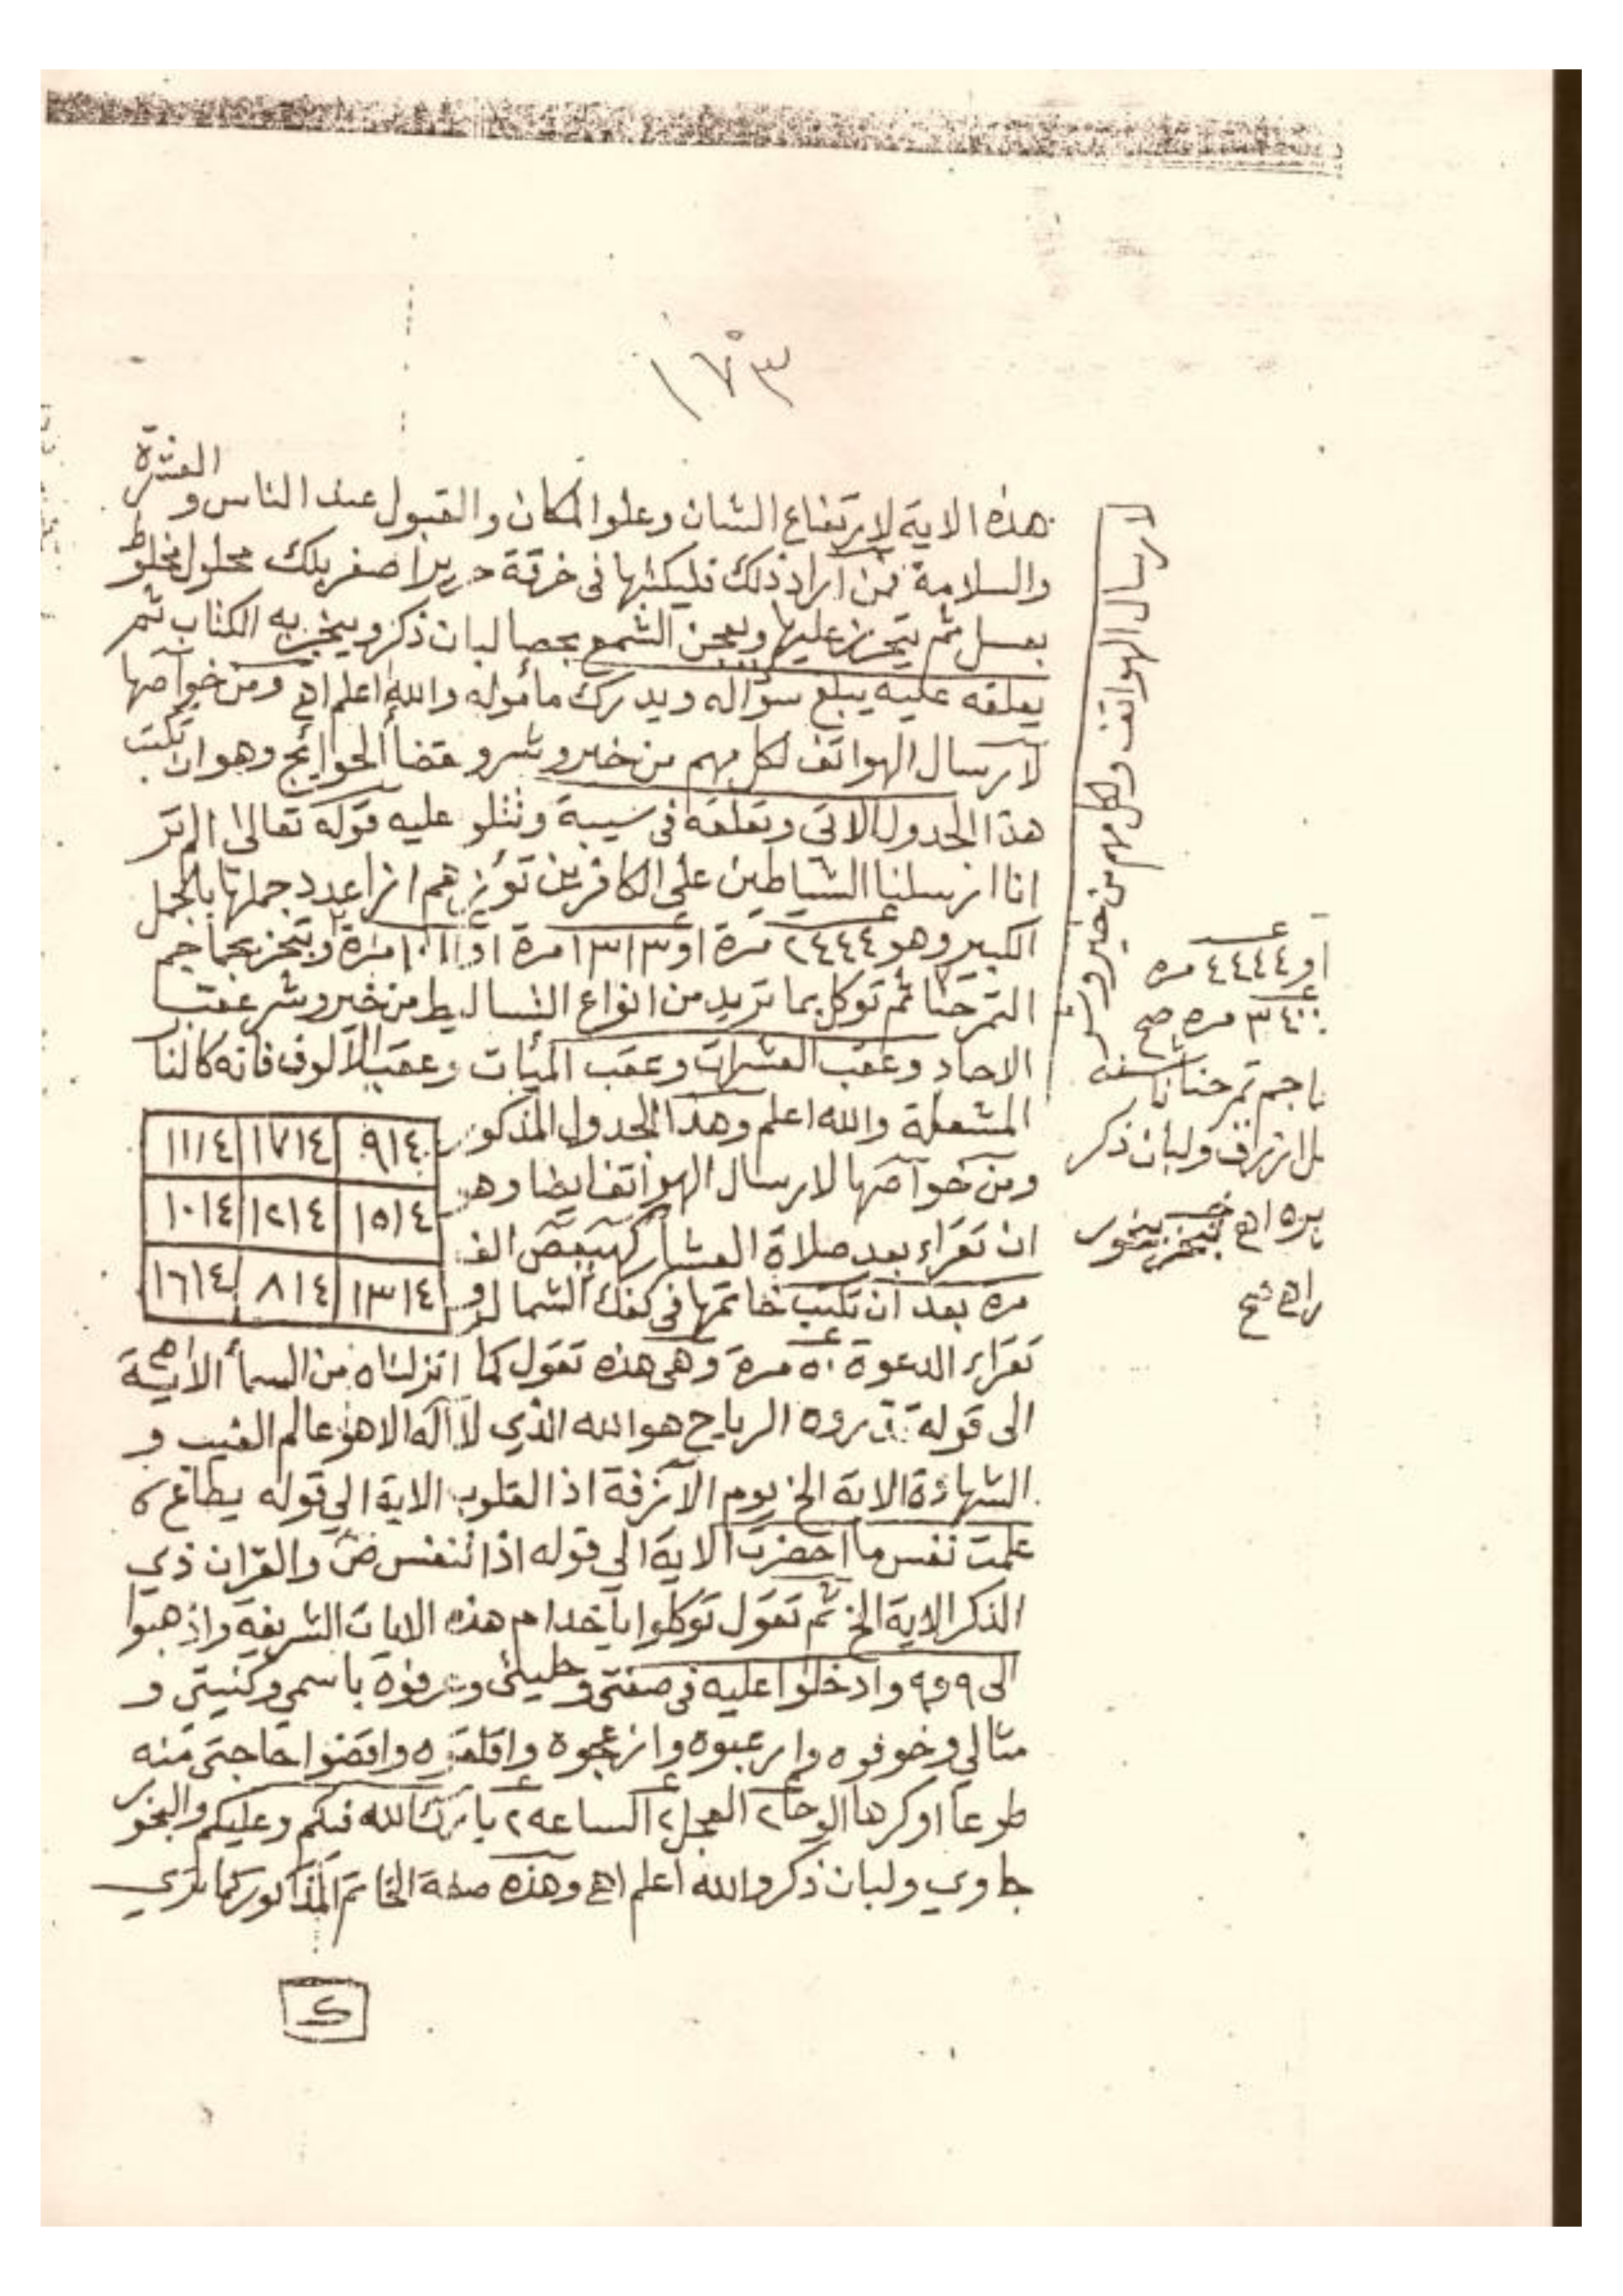 ١٧٣
هذه الاية لارتفاع الشان وعلوا لمكان والقبول عند الناس و العشرة
والسلامة فمن اراد ذلك فليكتبها فى خرقة حرير اصفر بلك محلول مخلوط
بعسل ثم يتحرز عليها وبعجن الشمع بحصا لبان ذكر ويبخر به الكتاب ثم
يعلقه عليه يبلغ سؤاله ويدرك مأموله والله اعلم اهـ ومن خواصها
لارسال الهواتف لكل مهم من خير وشر و قضاألحوايج وهو ان تكتب
هذا الجدول الاتى وتعلقه فى سيبة وتتلو عليه قوله تعالى الم تر
انا ارسلنا الشياطين على الكافرين تؤزهم ازا عدد جملها بالجمل
الكبير وهو ٢٤٤٤ مرة او ١٣١٣ مرة او ١٠١١ مرة وتبخر بجماجم
التمرحنا ثم توكل بما تريد من انواع التساليط من خير وشر عقب
الاحاد وعقب العشرات وعقب المئات وعقب الالوف فانه كالنا
المشعلة والله اعلم وهذا الجدول المذكور
ومن خواصها لارسال الهواتف ايضا وهر
ان تقراء بعد صلاة العشا ركهيعص الف
مره بعد ان تكتب خاتمها فى كفك الشمال و
٩١٤ ١٧١٤ ١١١٤
١٥١٤ ١٢١٤ ١٠١٤
١٣١٤ ٨١٤ ١٦١٤
تقراء الدعوة ٥٠ مرة وهى هذه تقول كما انزلناه من السمأ الاية
الى قوله تذروه الرياح هوالله الذي لااله الا هو عالم الغيب و
الشهادة الاية الخ يوم الآزفة اذ القلوب الاية الي قوله يطاع ٥
علمت نفس ما احضرت الاية الي قوله اذا تنفس ص والقران ذي
الذكر الاية الخ ثم تقول توكلوا ياخدام هذه الايات الشريفة واذهبوا
الى ٩ و٩ وادخلوا عليه فى صفتى وحليتى وعرفوه باسمي وكنيتي و
مثالي وخوفوه وارعبوه وازعجوه واقلقوه واقضوا حاجتى منه
طوعا اوكرها الوحا ٢ العجل ٢ الساعه ٢ بارك الله فيكم وعليكم والبخور
جاوي ولبان ذكر والله اعلم اهـ وهذه صفة الخاتم المذكور كما ترى
ارسال الهواتف ولكل مهم من خير وشر
او ٤٤٤٤ مره
٣٤٠٠ مره صح
اجم تمرحنا ناشفه
ولبان ذكر
بره اهـ